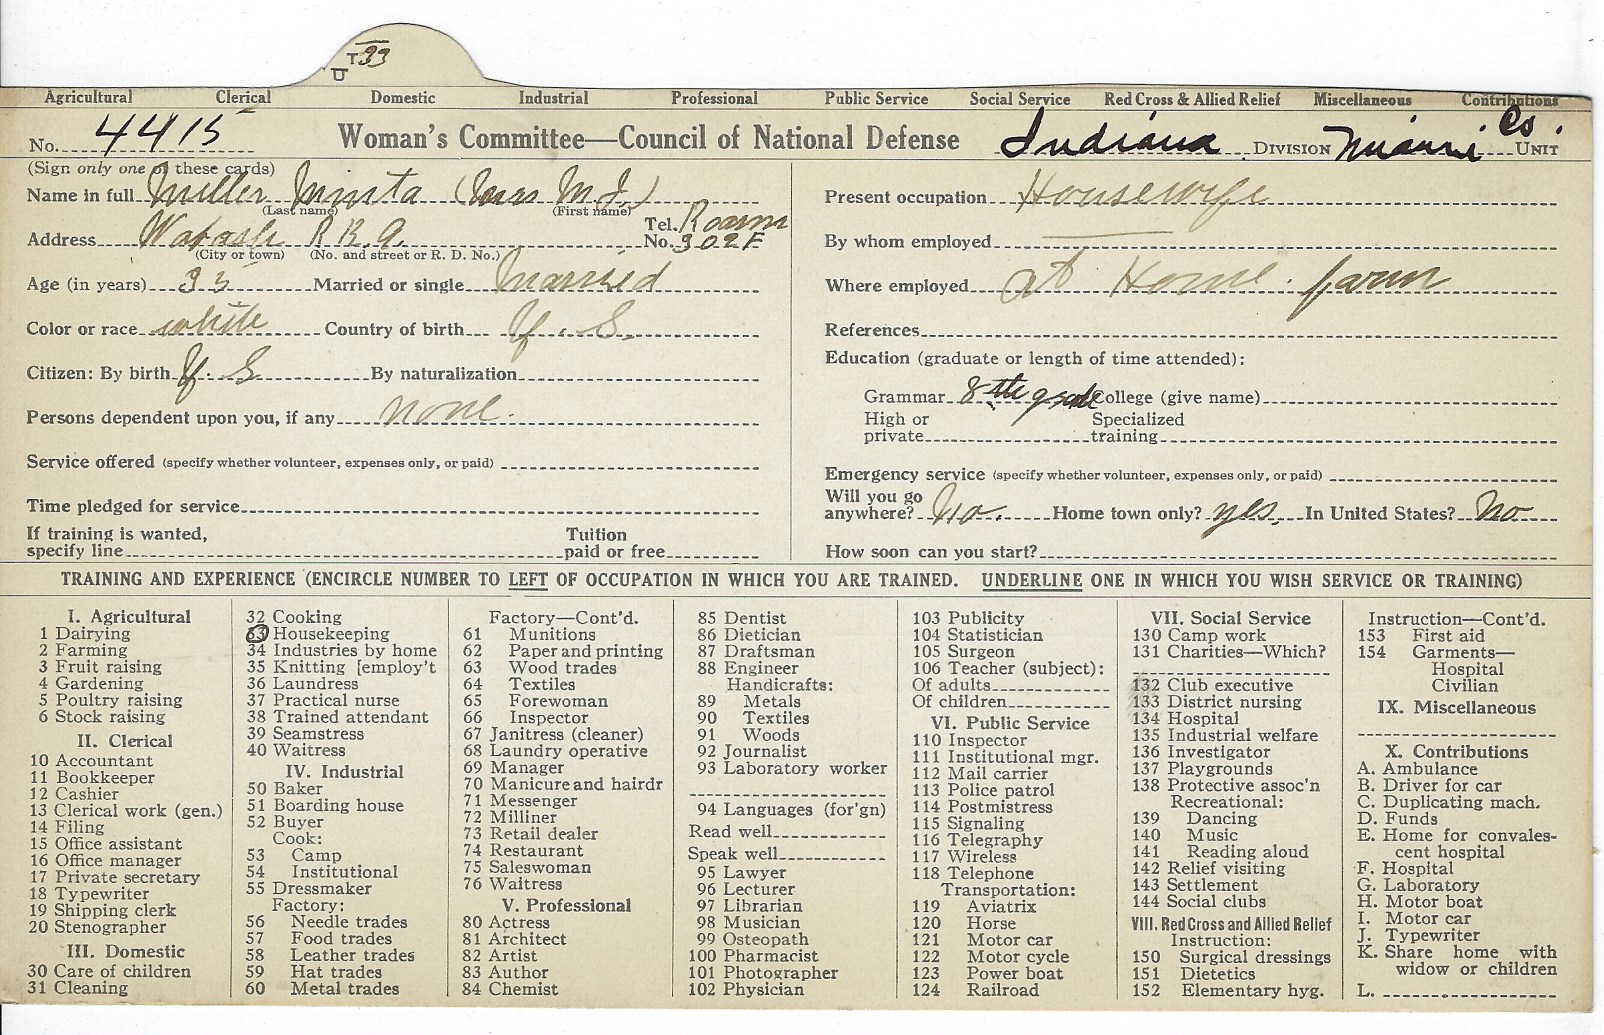 T 33
U
Agricultural Clerical Domestic Industrial Professional Public Service Social Service Red Cross & Allied Relief Miscellaneous Contributions
No. 4415 Woman's Committee—Council of National Defense Indiana DIVISION Miami Co. UNIT
(Sign only one of these cards)
Name in full Miller Minta (Mrs M.J.)
(Last name) (First name)
Address Wabash R R. 9. Tel. No. Roann 302F
(City or town) (No. and street or R. D. No.)
Age (in years) 35 Married or single Married
Color or race white Country of birth U. S.
Citizen: By birth U. S By naturalization
Persons dependent upon you, if any none.
Service offered (specify whether volunteer, expenses only, or paid)
Time pledged for service
If training is wanted, specify line Tuition paid or free
Present occupation Housewife
By whom employed
Where employed at Home. farm
References
Education (graduate or length of time attended):
Grammar 8 the grade College (give name)
High or private Specialized training
Emergency service (specify whether volunteer, expenses only, or paid)
Will you go anywhere? No. Home town only? yes. In United States? No
How soon can you start?
TRAINING AND EXPERIENCE (ENCIRCLE NUMBER TO LEFT OF OCCUPATION IN WHICH YOU ARE TRAINED. UNDERLINE ONE IN WHICH YOU WISH SERVICE OR TRAINING)
I. Agricultural
1 Dairying
2 Farming
3 Fruit raising
4 Gardening
5 Poultry raising
6 Stock raising
II. Clerical
10 Accountant
11 Bookkeeper
12 Cashier
13 Clerical work (gen.)
14 Filing
15 Office assistant
16 Office manager
17 Private secretary
18 Typewriter
19 Shipping clerk
20 Stenographer
III. Domestic
30 Care of children
31 Cleaning
32 Cooking
33 Housekeeping
34 Industries by home
35 Knitting [employ't
36 Laundress
37 Practical nurse
38 Trained attendant
39 Seamstress
40 Waitress
IV. Industrial
50 Baker
51 Boarding house
52 Buyer
Cook:
53 Camp
54 Institutional
55 Dressmaker
Factory:
56 Needle trades
57 Food trades
58 Leather trades
59 Hat trades
60 Metal trades
Factory—Cont'd.
61 Munitions
62 Paper and printing
63 Wood trades
64 Textiles
65 Forewoman
66 Inspector
67 Janitress (cleaner)
68 Laundry operative
69 Manager
70 Manicure and hairdr
71 Messenger
72 Milliner
73 Retail dealer
74 Restaurant
75 Saleswoman
76 Waitress
V. Professional
80 Actress
81 Architect
82 Artist
83 Author
84 Chemist
85 Dentist
86 Dietician
87 Draftsman
88 Engineer
Handicrafts:
89 Metals
90 Textiles
91 Woods
92 Journalist
93 Laboratory worker
94 Languages (for'gn)
Read well
Speak well
95 Lawyer
96 Lecturer
97 Librarian
98 Musician
99 Osteopath
100 Pharmacist
101 Photographer
102 Physician
103 Publicity
104 Statistician
105 Surgeon
106 Teacher (subject):
Of adults
Of children
VI. Public Service
110 Inspector
111 Institutional mgr.
112 Mail carrier
113 Police patrol
114 Postmistress
115 Signaling
116 Telegraphy
117 Wireless
118 Telephone
Transportation:
119 Aviatrix
120 Horse
121 Motor car
122 Motor cycle
123 Power boat
124 Railroad
VII. Social Service
130 Camp work
131 Charities—Which?
132 Club executive
133 District nursing
134 Hospital
135 Industrial welfare
136 Investigator
137 Playgrounds
138 Protective assoc'n
Recreational:
139 Dancing
140 Music
141 Reading aloud
142 Relief visiting
143 Settlement
144 Social clubs
VIII. Red Cross and Allied Relief
Instruction:
150 Surgical dressings
151 Dietetics
152 Elementary hyg.
Instruction—Cont'd.
153 First aid
154 Garments—
Hospital
Civilian
IX. Miscellaneous
X. Contributions
A. Ambulance
B. Driver for car
C. Duplicating mach.
D. Funds
E. Home for convales-
cent hospital
F. Hospital
G. Laboratory
H. Motor boat
I. Motor car
J. Typewriter
K. Share home with
widow or children
L.